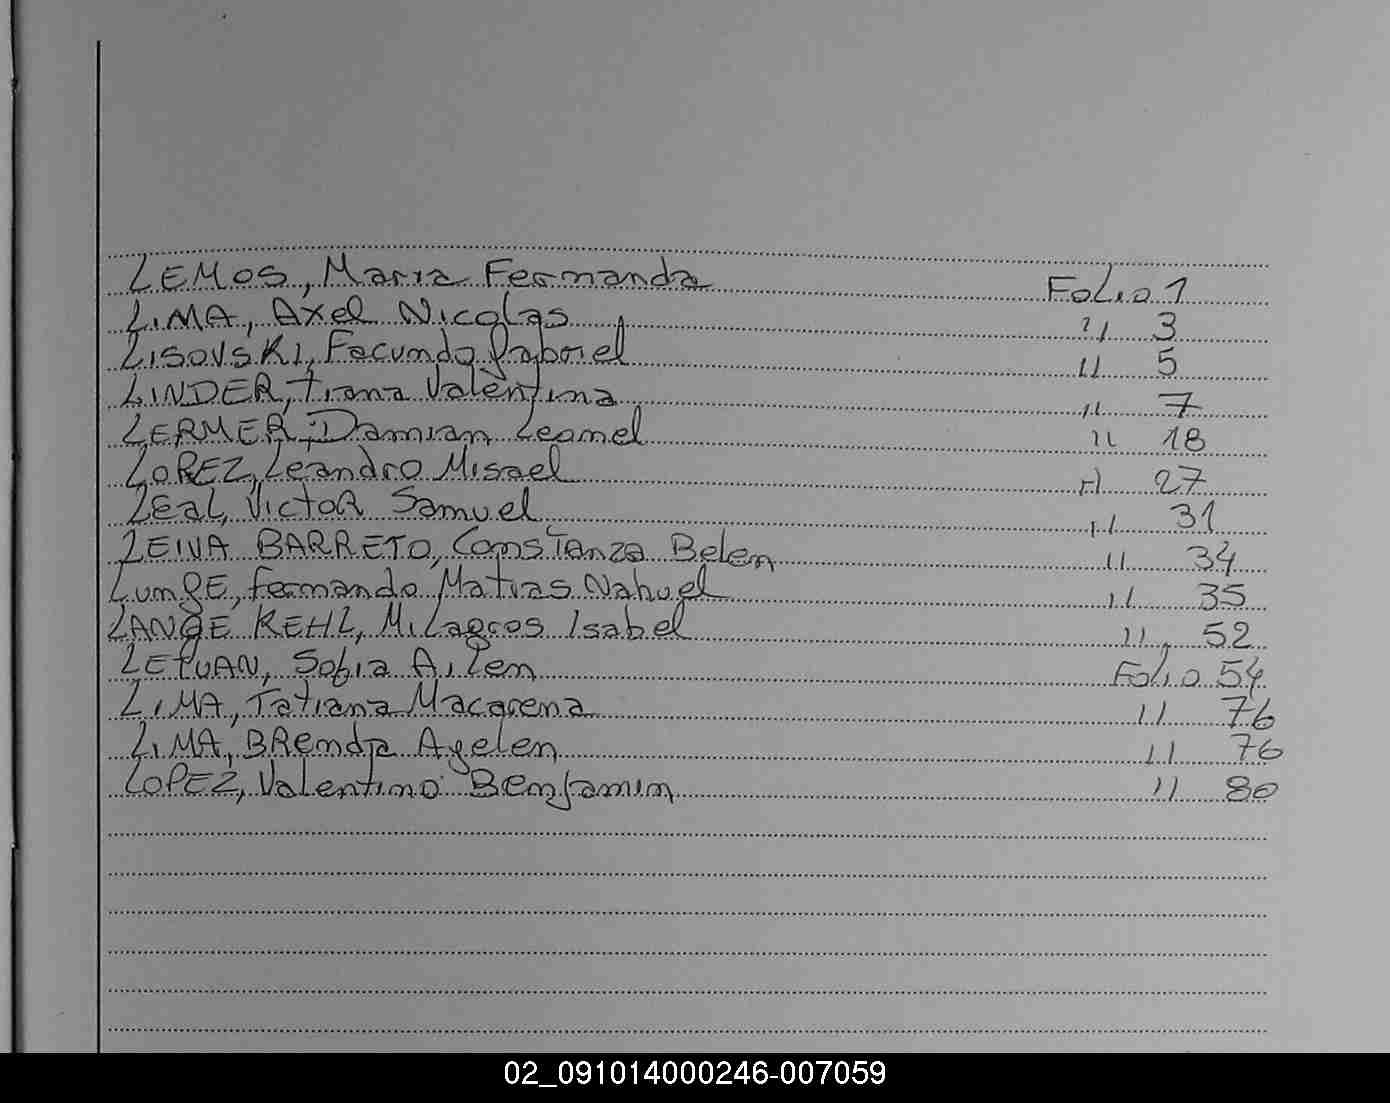 LEMOS, Maria Fernanda Folio 1
LIMA, Axel Nicolas " 3
LISOVSKI, Facundo Gabriel " 5
LINDER, Tiana Valentina " 7
LERMER, Damian Leonel " 18
LOPEZ, Leandro Misael " 27
LEAL, Victor Samuel " 31
LEIVA BARRETO, Constanza Belen " 34
LungE, Fernando Matias Nahuel " 35
LANGE KEHL, Milagros Isabel " 52
Sofia Ailen Folio 54
LIMA, Tatiana Macarena " 76
LIMA, Brenda Ayelen " 76
LOPEZ, Valentino Benjamin " 80
02_091014000246-007059